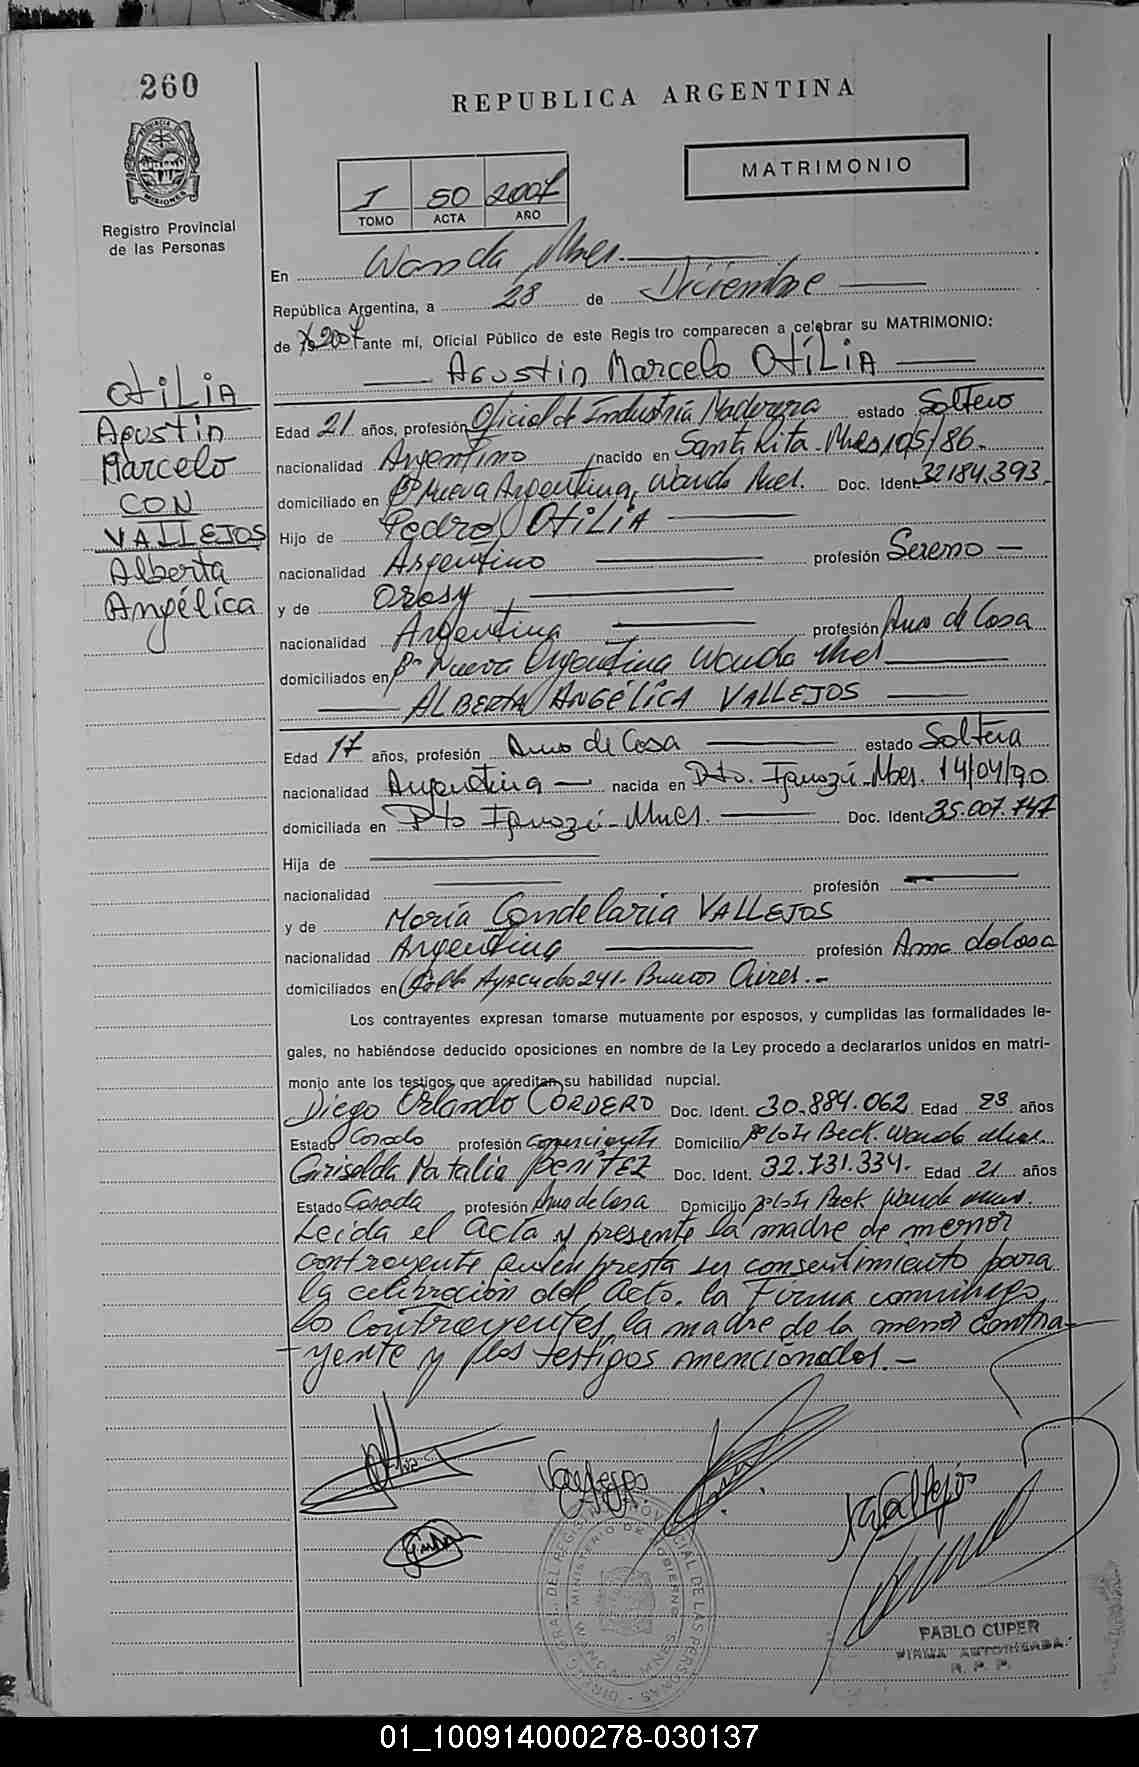 260
REPUBLICA ARGENTINA
PROVINCIA DE MISIONES
Registro Provincial
de las Personas
MATRIMONIO
I 50 2007
TOMO ACTA AÑO
En Wanda Mnes.
República Argentina, a 28 de Diciembre
de 2007 ante mí, Oficial Público de este Registro comparecen a celebrar su MATRIMONIO:
Agustin Marcelo OtiLiA
OtiLiA
Agustin
Marcelo
CON
VALLEJOS
Alberta
Angélica
Edad 21 años, profesión Oficial de Industria Maderera estado Soltero
nacionalidad Argentino nacido en Santa Rita - Mnes 10/5/86.-
domiciliado en Bº Nueva Argentina, Wanda Mnes. Doc. Ident. 32184.393.
Hijo de Pedro OtiLiA
nacionalidad Argentino profesión Sereno
y de Orasy
nacionalidad Argentina profesión Ama de Casa
domiciliados en Bº Nueva Argentina Wanda Mnes
ALBERTA ANGÉLICA VALLEJOS
Edad 17 años, profesión Ama de Casa estado Soltera
nacionalidad Argentina nacida en Pto. Iguazú - Mnes. 14/04/90
domiciliada en Pto Iguazú - Mnes. Doc. Ident. 35.007.747
Hija de
nacionalidad profesión
y de María Candelaria VALLEJOS
nacionalidad Argentina profesión Ama de Casa
domiciliados en Calle Ayacucho 241 - Buenos Aires.-
Los contrayentes expresan tomarse mutuamente por esposos, y cumplidas las formalidades le-
gales, no habiéndose deducido oposiciones en nombre de la Ley procedo a declararlos unidos en matri-
monio ante los testigos que acreditan su habilidad nupcial.
Diego Orlando CORDERO Doc. Ident. 30.884.062 Edad 23 años
Estado Casado profesión Comerciante Domicilio Beck. Wanda Mnes.
Griselda Natalia BENITEZ Doc. Ident. 32.731.334. Edad 21 años
Estado Casada profesión Ama de Casa Domicilio Beck Wanda Mnes.
Leída el Acta y presente la madre de menor
contrayente quien presta su consentimiento para
la celebración del Acto. la Firma conmigo
los Contrayentes, la madre de la menor contra-
yente y los testigos mencionados.-
Vallejos
Vallejos
DIRECC. GRAL. DEL REGISTRO PROVINCIAL DE LAS PERSONAS
MINISTERIO DE GOBIERNO
PABLO CUPER
FIRMA AUTORIZADA
R. P. P.
01_100914000278-030137